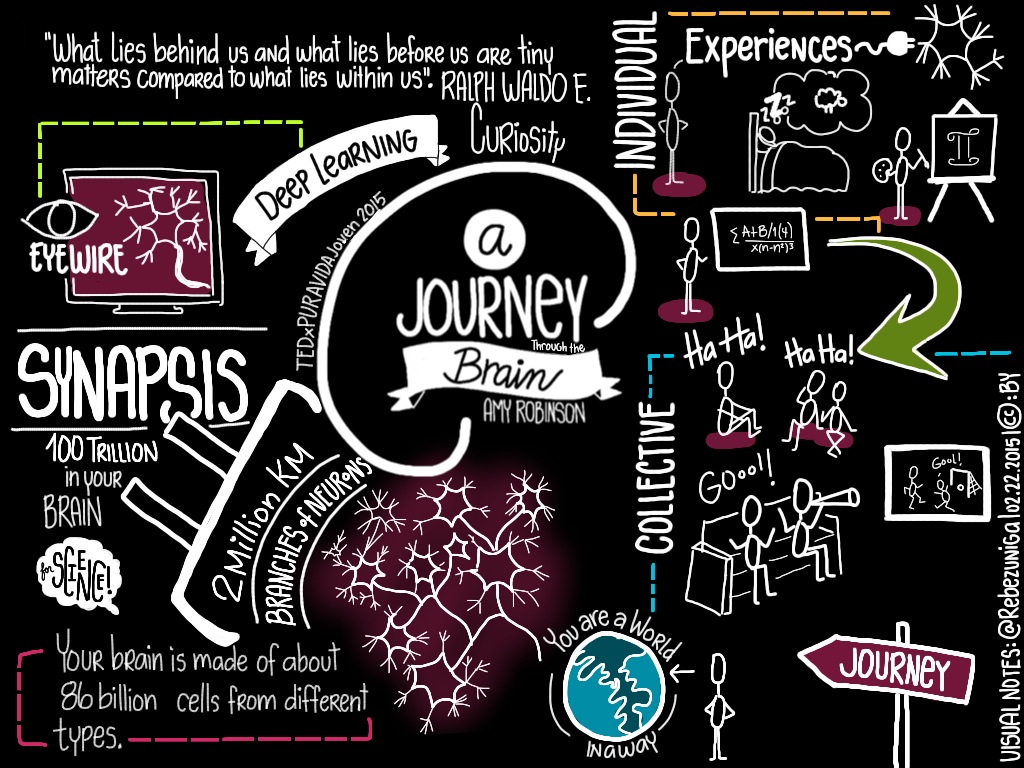 "What lies behind us and what lies before us are tiny
matters compared to what lies within us". RALPH WALDO E.
Curiosity
Deep Learning
EYEWIRE
TEDxPURAVIDAJoven 2015
a
JOURNEY
Through the
Brain
AMY ROBINSON
SYNAPSIS
100 TRILLION
in your
BRAIN
for SCIENCE!
2 Million KM
BRANCHES of NEURONS
Your brain is made of about
86 billion cells from different
types.
INDIVIDUAL
Experiences
zzzz
II
Σ A+B/1(4)
x(n-n²)³
HaHa!
HaHa!
COLLECTIVE
Gooo!!
Gool!
You are a World
IN a WAY
JOURNEY
VISUAL NOTES: @Rebezuniga | 02.22.2015 | CC :BY